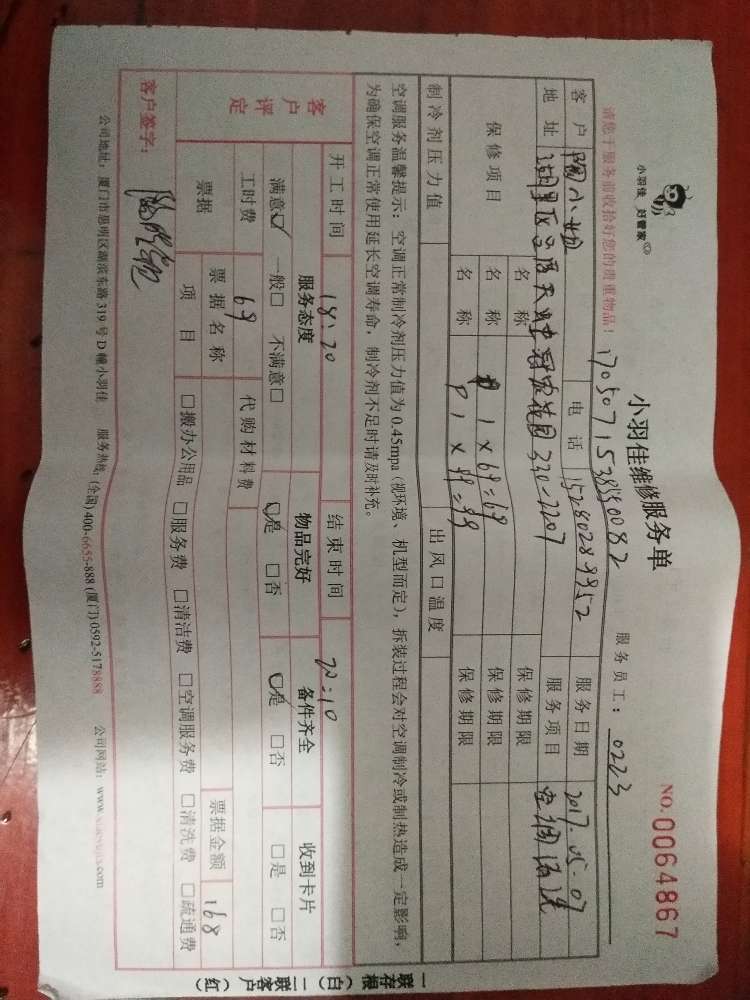 小羽佳 好管家
小羽佳维修服务单
NO. 0064867
请您于服务前收拾好您的贵重物品!
服务员工: 0223
客户 电话 15280289952 服务日期 2017.05.07
地址 冠宏花园 330-2207 服务项目 空调清洗
保修项目 名称 保修期限
名称 1×69=69 保修期限
名称 1×99=99 保修期限
制冷剂压力值 出风口温度
空调服务温馨提示: 空调正常制冷剂压力值为 0.45mpa (视环境、机型而定), 拆装过程会对空调制冷或制热造成一定影响,
为确保空调正常使用延长空调寿命, 制冷剂不足时请及时补充。
开工时间 18:20 结束时间 20:10
客户评定 服务态度 物品完好 备件齐全 收到卡片
满意☑ 一般□ 不满意□ ☑是 □否 ☑是 □否 □是 □否
工时费 69 代购材料费
票据 票据名称 票据金额 168
项目 □搬办公用品 □服务费 □清洁费 □空调服务费 □清洗费 □疏通费
客户签字:
公司地址: 厦门市思明区湖滨东路 319 号 D 幢小羽佳 服务热线: (全国) 400-6655-888 (厦门) 0592-5178888 公司网站: www.xiaoyujia.com
一联存根 (白) 二联客户 (红)